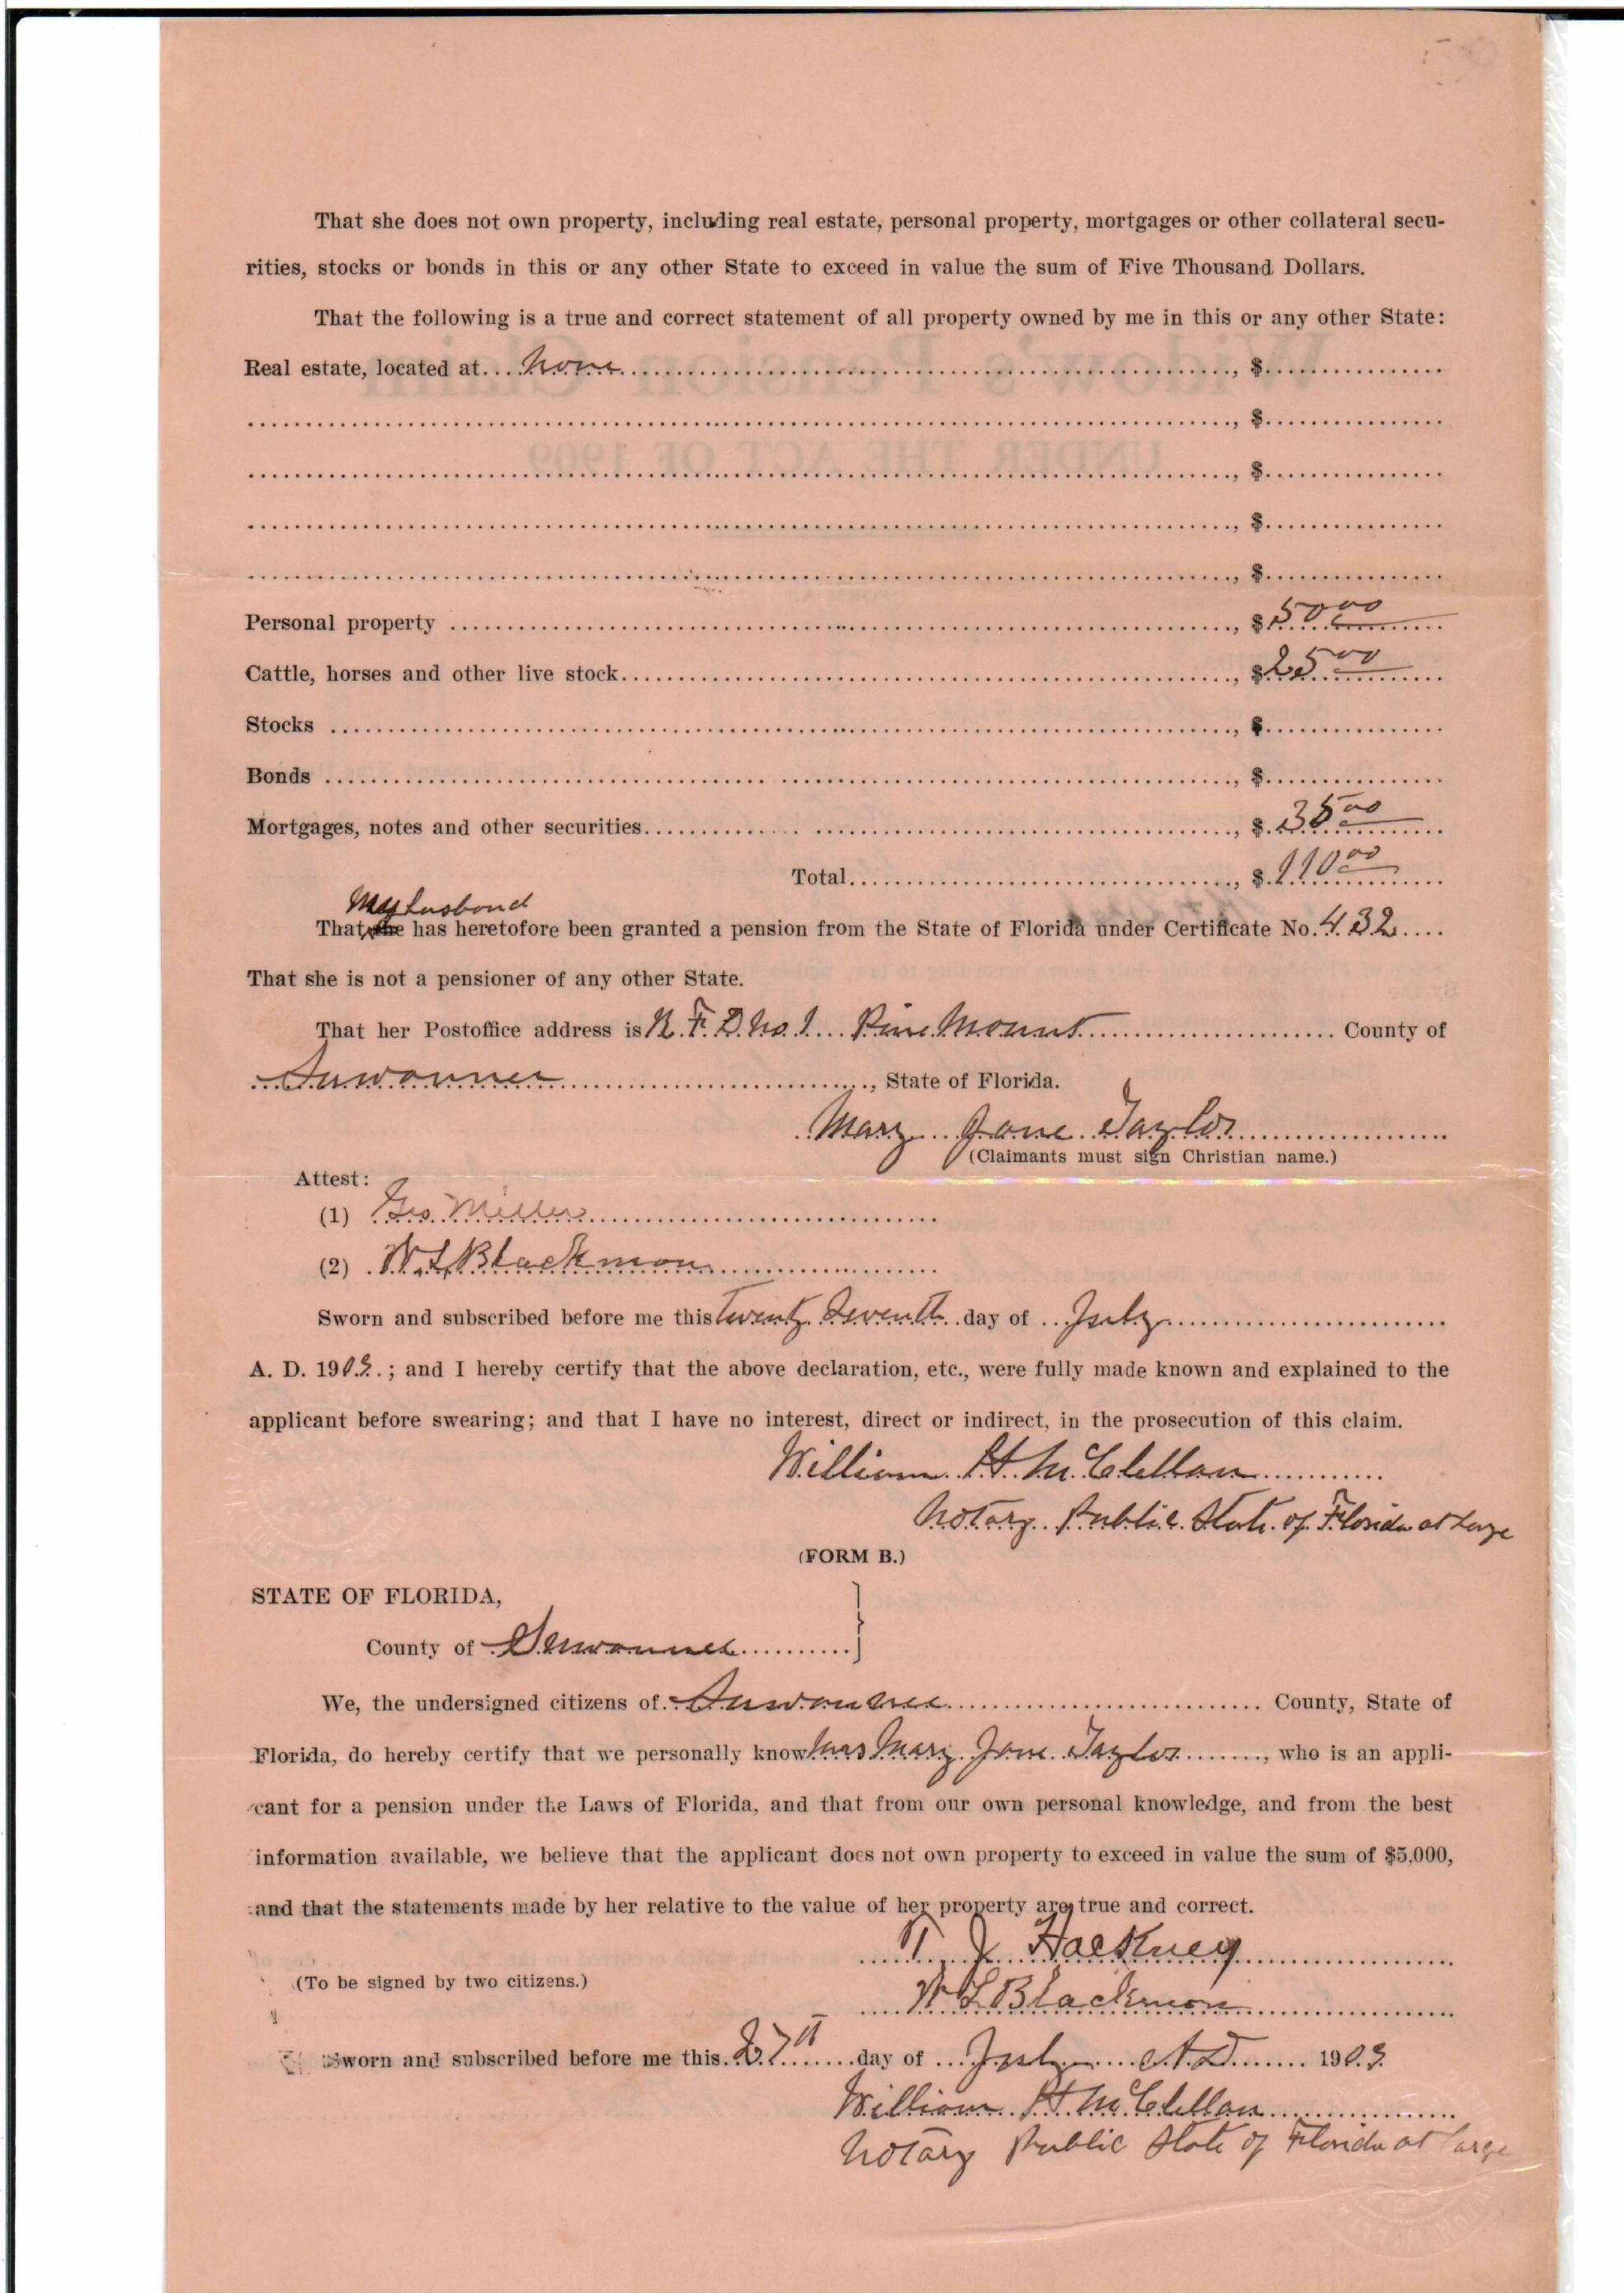 That she does not own property, including real estate, personal property, mortgages or other collateral secu-
rities, stocks or bonds in this or any other State to exceed in value the sum of Five Thousand Dollars.
That the following is a true and correct statement of all property owned by me in this or any other State:
Real estate, located at None , $
, $
, $
, $
, $
Personal property , $ 50 00
Cattle, horses and other live stock , $ 25 00
Stocks , $
Bonds , $
Mortgages, notes and other securities , $ 35 00
Total , $ 110 00
My husband
That she has heretofore been granted a pension from the State of Florida under Certificate No. 432
That she is not a pensioner of any other State.
That her Postoffice address is R. F. D. No. 1 Pine Mount County of
Suwannee , State of Florida.
Mary Jane Taylor
(Claimants must sign Christian name.)
Attest:
(1) Geo Miller
(2) W. L. Blackmon
Sworn and subscribed before me this Twenty Seventh day of July
A. D. 1909.; and I hereby certify that the above declaration, etc., were fully made known and explained to the
applicant before swearing; and that I have no interest, direct or indirect, in the prosecution of this claim.
William H. McClellan
Notary Public State of Florida at Large
(FORM B.)
STATE OF FLORIDA,
County of Suwannee
We, the undersigned citizens of Suwannee County, State of
Florida, do hereby certify that we personally know Mrs Mary Jane Taylor , who is an appli-
cant for a pension under the Laws of Florida, and that from our own personal knowledge, and from the best
information available, we believe that the applicant does not own property to exceed in value the sum of $5,000,
and that the statements made by her relative to the value of her property are true and correct.
T. J. Hackney
(To be signed by two citizens.)
W L Blackmon
Sworn and subscribed before me this 27th day of July A. D. 1909.
William H. McClellan
Notary Public State of Florida at large